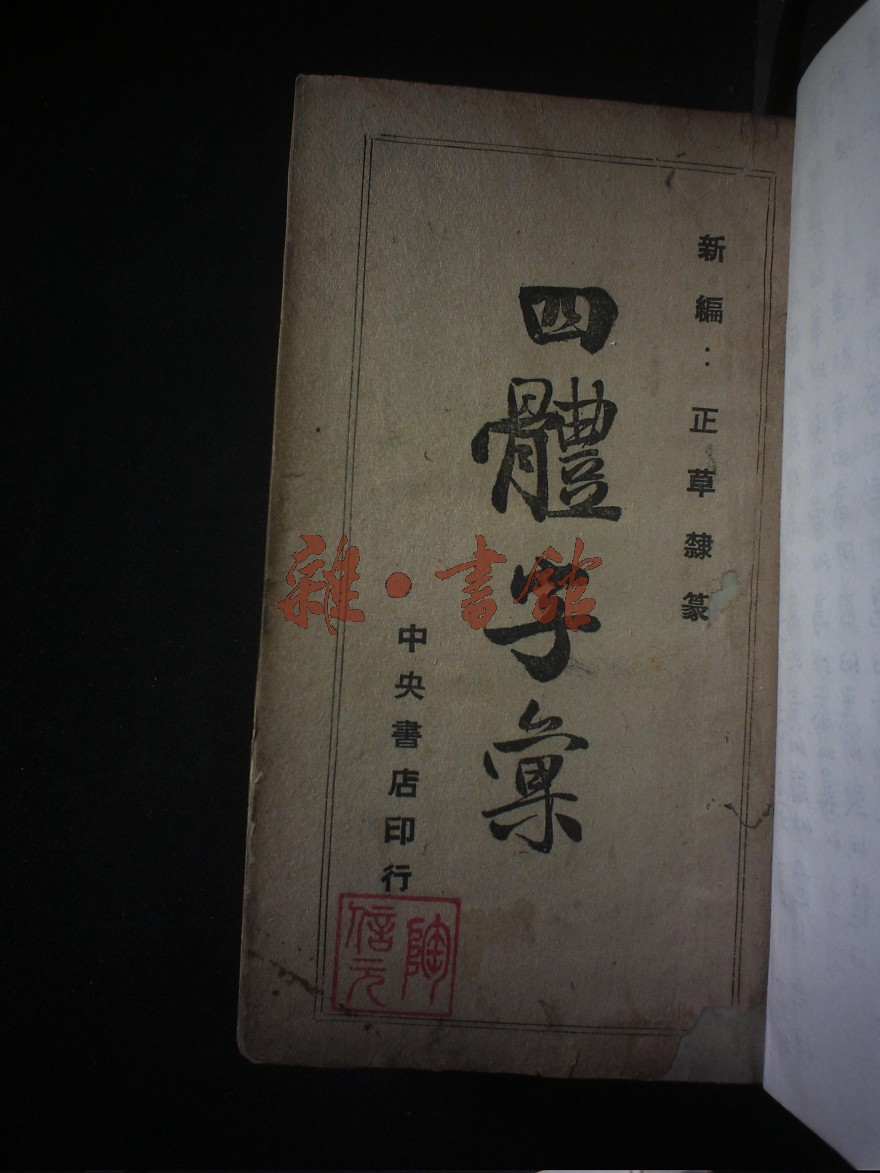 新編：正草隸篆
四體字彙
中央書店印行
陶信元
雜·書館